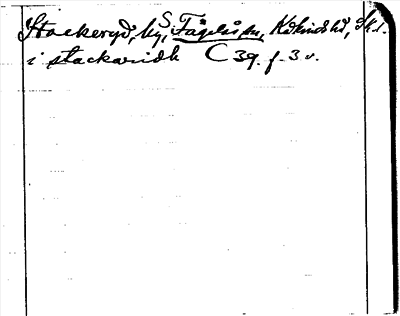 Stackeryd, by, S. Fågelås sn, Kåkinds hd, Sk. l.
i stackaridh C 39. f. 3 v.